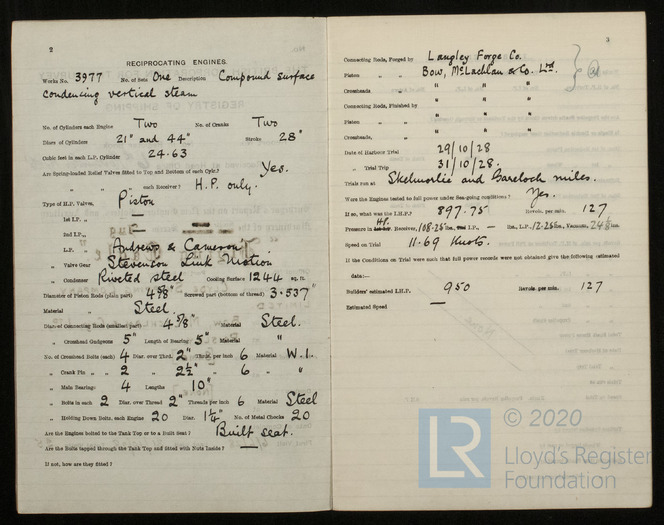 2
RECIPROCATING ENGINES.
Works No. 3977 No. of Sets One Description Compound surface
condencing vertical steam
No. of Cylinders each Engine Two No. of Cranks Two
Diars of Cylinders 21" and 44" Stroke 28"
Cubic feet in each L.P. Cylinder 24.63
Are Spring-loaded Relief Valves fitted to Top and Bottom of each Cylr.? Yes.
" " " each Receiver? H.P. only.
Type of H.P. Valves, Piston
" 1st I.P. " —
" 2nd I.P. " —
" L.P. " Andrews & Cameron
" Valve Gear Stevenson Link Motion
" Condenser Riveted steel Cooling Surface 1244 sq. ft.
Diameter of Piston Rods (plain part) 4 5/8" Screwed part (bottom of thread) 3.537"
Material " Steel.
Diar. of Connecting Rods (smallest part) 4 5/8" Material Steel.
" Crosshead Gudgeons 5" Length of Bearing 5" Material "
No. of Crosshead Bolts (each) 4 Diar. over Thrd. 2" Thrds. per inch 6 Material W.I.
" Crank Pin " " 2 " 2½" " 6 " "
" Main Bearings 4 Lengths 10"
" Bolts in each 2 Diar. over Thread 2" Threads per inch 6 Material Steel
" Holding Down Bolts, each Engine 20 Diar. 1¼" No. of Metal Chocks 20
Are the Engines bolted to the Tank Top or to a Built Seat? Built seat.
Are the Bolts tapped through the Tank Top and fitted with Nuts Inside? —
If not, how are they fitted?
3
Connecting Rods, Forged by Langley Forge Co.
Piston " " Bow, McLachlan & Co. Ltd.
Crossheads " " " "
Connecting Rods, Finished by " " "
Piston " " " " "
Crossheads, " " " "
Date of Harbour Trial 29/10/28
" Trial Trip 31/10/28.
Trials run at Skelmorlie and Gareloch miles.
Were the Engines tested to full power under Sea-going conditions? Yes.
If so, what was the I.H.P.? 897.75 Revols. per min. 127
Pressure in H.P. Receiver, 108.25 lbs., I.P. — lbs., L.P., 12.25 lbs., Vacuum, 24½ ins.
Speed on Trial 11.69 Knots.
If the Conditions on Trial were such that full power records were not obtained give the following estimated
data:—
Builders' estimated I.H.P. 950 Revols. per min. 127
Estimated Speed —
© 2020
LR
Lloyd's Register
Foundation